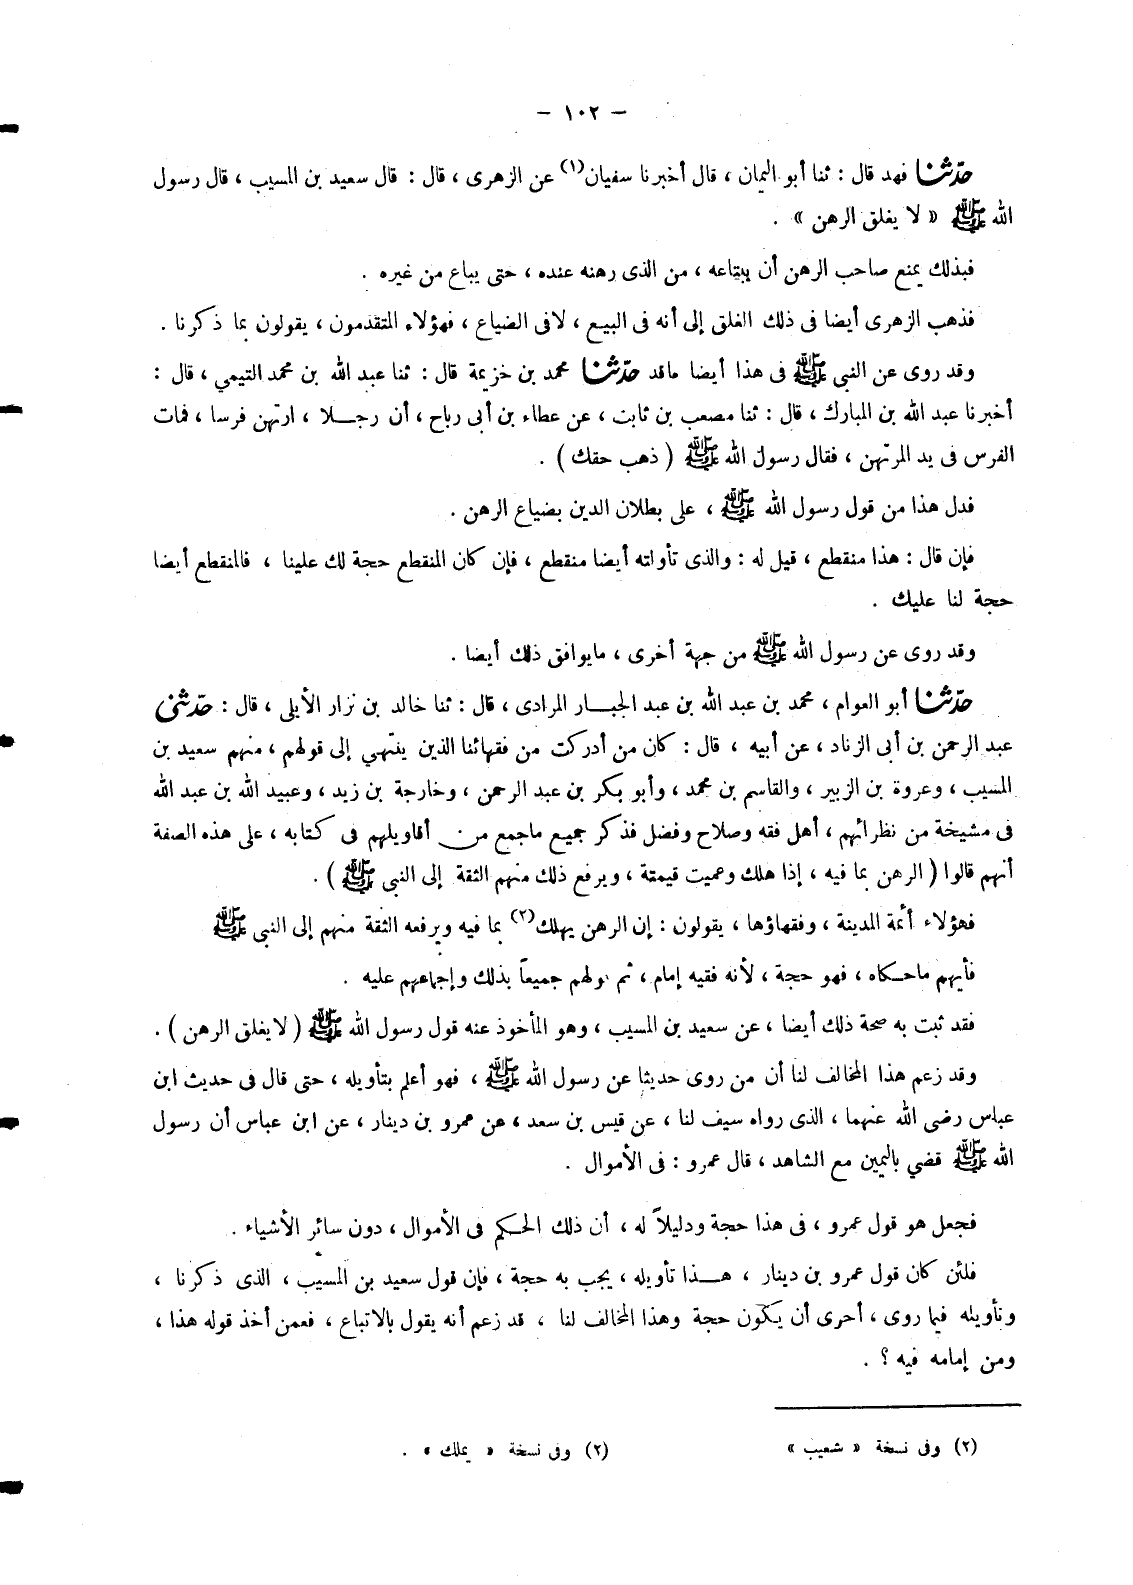 — ١٠٢ —
حدّثنا فهد قال : ثنا أبو اليمان ، قال أخبرنا سفيان(١) عن الزهرى ، قال : قال سعيد بن المسيب ، قال رسول
الله ﷺ « لا يغلق الرهن » .
فبذلك يمنع صاحب الرهن أن يبتاعه ، من الذى رهنه عنده ، حتى يباع من غيره .
فذهب الزهرى أيضا فى ذلك الغلق إلى أنه فى البيع ، لافى الضياع ، فهؤلاء المتقدمون ، يقولون بما ذكرنا .
وقد روى عن النبى ﷺ فى هذا أيضا ماقد حدّثنا محمد بن خزيمة قال : ثنا عبد الله بن محمد التيمي ، قال :
أخبرنا عبد الله بن المبارك ، قال : ثنا مصعب بن ثابت ، عن عطاء بن أبى رباح ، أن رجـلا ، ارتهن فرسا ، فمات
الفرس فى يد المرتهن ، فقال رسول الله ﷺ ( ذهب حقك ) .
فدل هذا من قول رسول الله ﷺ ، على بطلان الدين بضياع الرهن .
فإن قال : هذا منقطع ، قيل له : والذى تأولته أيضا منقطع ، فإن كان المنقطع حجة لك علينا ، فالمنقطع أيضا
حجة لنا عليك .
وقد روى عن رسول الله ﷺ من جهة أخرى ، مايوافق ذلك أيضا .
حدّثنا أبو العوام ، محمد بن عبد الله بن عبد الجبـار المرادى ، قال : ثنا خالد بن نزار الأيلى ، قال : حدّثنى
عبد الرحمن بن أبى الزناد ، عن أبيه ، قال : كان من أدركت من فقهائنا الذين ينتهي إلى قولهم ، منهم سعيد بن
المسيب ، وعروة بن الزبير ، والقاسم بن محمد ، وأبو بكر بن عبد الرحمن ، وخارجة بن زيد ، وعبيد الله بن عبد الله
فى مشيخة من نظرائهم ، أهل فقه وصلاح وفضل فذكر جميع ماجمع من أقاويلهم فى كتابه ، على هذه الصفة
أنهم قالوا ( الرهن بما فيه ، إذا هلك وعميت قيمتة ، ويرفع ذلك منهم الثقة إلى النبى ﷺ ) .
فهؤلاء أئمة المدينة ، وفقهاؤها ، يقولون : إن الرهن يهلك(٢) بما فيه ويرفعه الثقة منهم إلى النبى ﷺ
فأيهم ماحكاه ، فهو حجة ، لأنه فقيه إمام ، ثم ولهم جميعاً بذلك وإجماعهم عليه .
فقد ثبت به صحة ذلك أيضا ، عن سعيد بن المسيب ، وهو المأخوذ عنه قول رسول الله ﷺ ( لا يغلق الرهن ) .
وقد زعم هذا المخالف لنا أن من روى حديثا عن رسول الله ﷺ ، فهو أعلم بتأويله ، حتى قال فى حديث ابن
عباس رضى الله عنهما ، الذى رواه سيف لنا ، عن قيس بن سعد ، عن عمرو بن دينار ، عن ابن عباس أن رسول
الله ﷺ قضي باليمين مع الشاهد ، قال عمرو : فى الأموال .
فجعل هو قول عمرو ، فى هذا حجة ودليلاً له ، أن ذلك الحكم فى الأموال ، دون سائر الأشياء .
فلئن كان قول عمرو بن دينار ، هـذا تأويله ، يجب به حجة ، فإن قول سعيد بن المسيب ، الذى ذكرنا ،
وتأويله فيما روى ، أحرى أن يكون حجة وهذا المخالف لنا ، قد زعم أنه يقول بالاتباع ، فعمن أخذ قوله هذا ،
ومن إمامه فيه ؟ .
(٢) وفى نسخة « شعيب » (٢) وفى نسخة « يملك » .